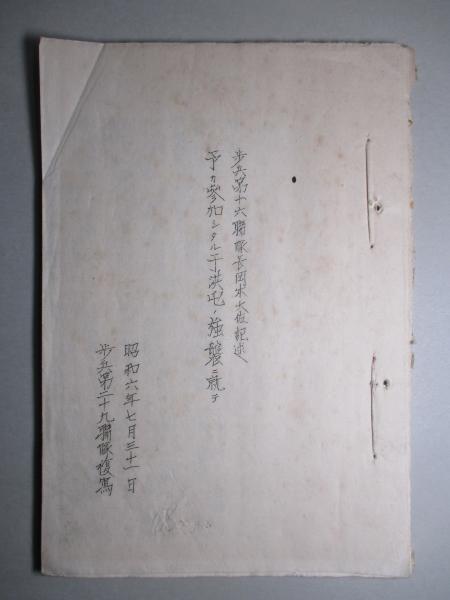 歩兵第十六聯隊長岡本大佐記述
予カ参加シタル于洪屯ノ強襲ニ就テ
昭和六年七月三十一日
歩兵第二十九聯隊複寫